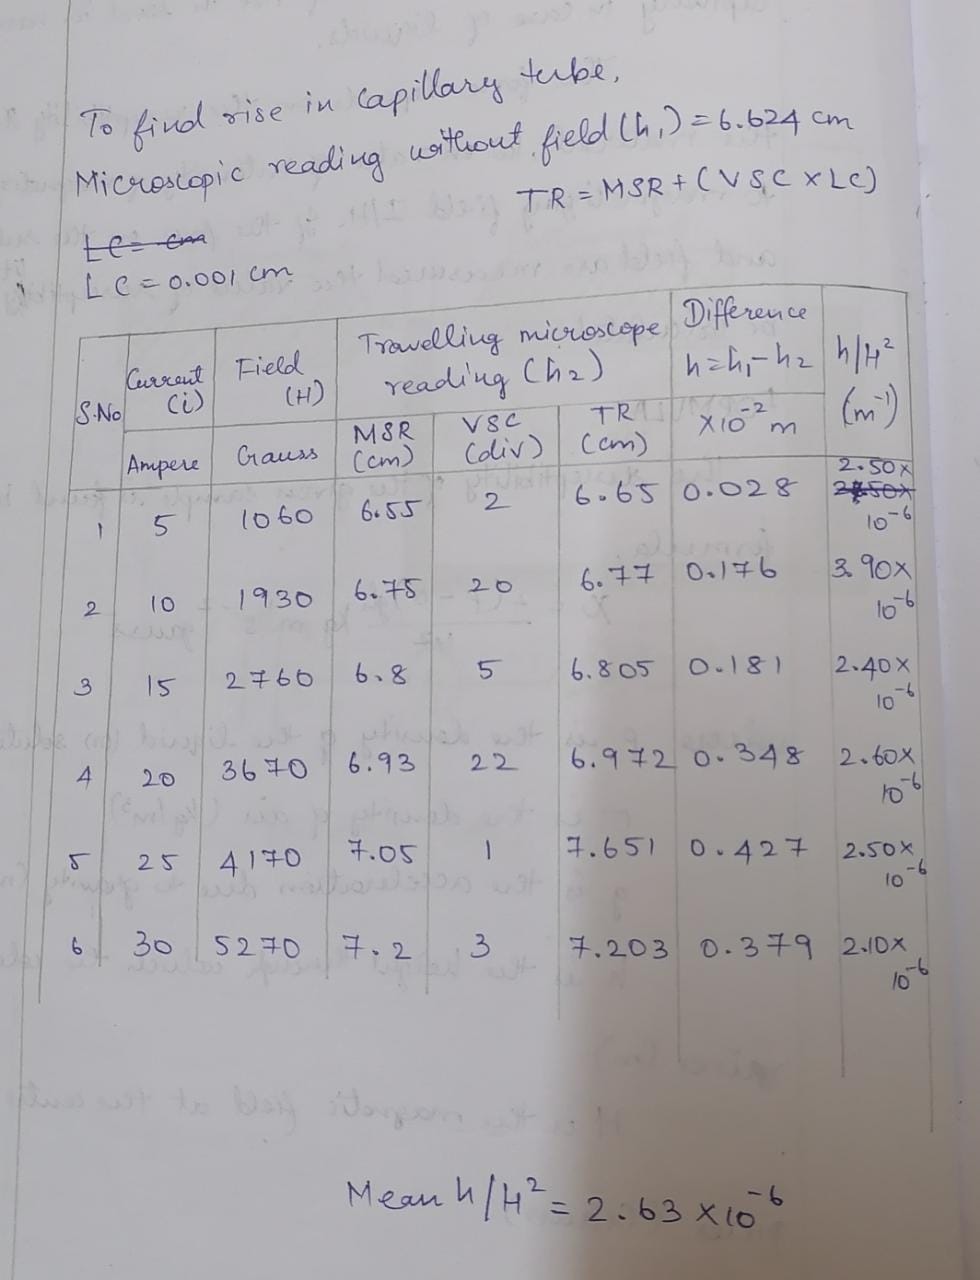 To find rise in capillary tube,
Microscopic reading without field (h₁) = 6.624 cm
TR = MSR + (VSC × LC)
LC = cm
LC = 0.001 cm
S.No | Current (i) Ampere | Field (H) Gauss | Travelling microscope reading (h₂) MSR (cm) | VSC (div) | TR (cm) | Difference h = h₁ - h₂ ×10⁻² m | h/H² (m⁻¹)
1 | 5 | 1060 | 6.55 | 2 | 6.65 | 0.028 | 2.50 × 10⁻⁶
2 | 10 | 1930 | 6.75 | 20 | 6.77 | 0.176 | 3.90 × 10⁻⁶
3 | 15 | 2760 | 6.8 | 5 | 6.805 | 0.181 | 2.40 × 10⁻⁶
4 | 20 | 3670 | 6.93 | 22 | 6.972 | 0.348 | 2.60 × 10⁻⁶
5 | 25 | 4170 | 7.05 | 1 | 7.651 | 0.427 | 2.50 × 10⁻⁶
6 | 30 | 5270 | 7.2 | 3 | 7.203 | 0.379 | 2.10 × 10⁻⁶
Mean h/H² = 2.63 × 10⁻⁶